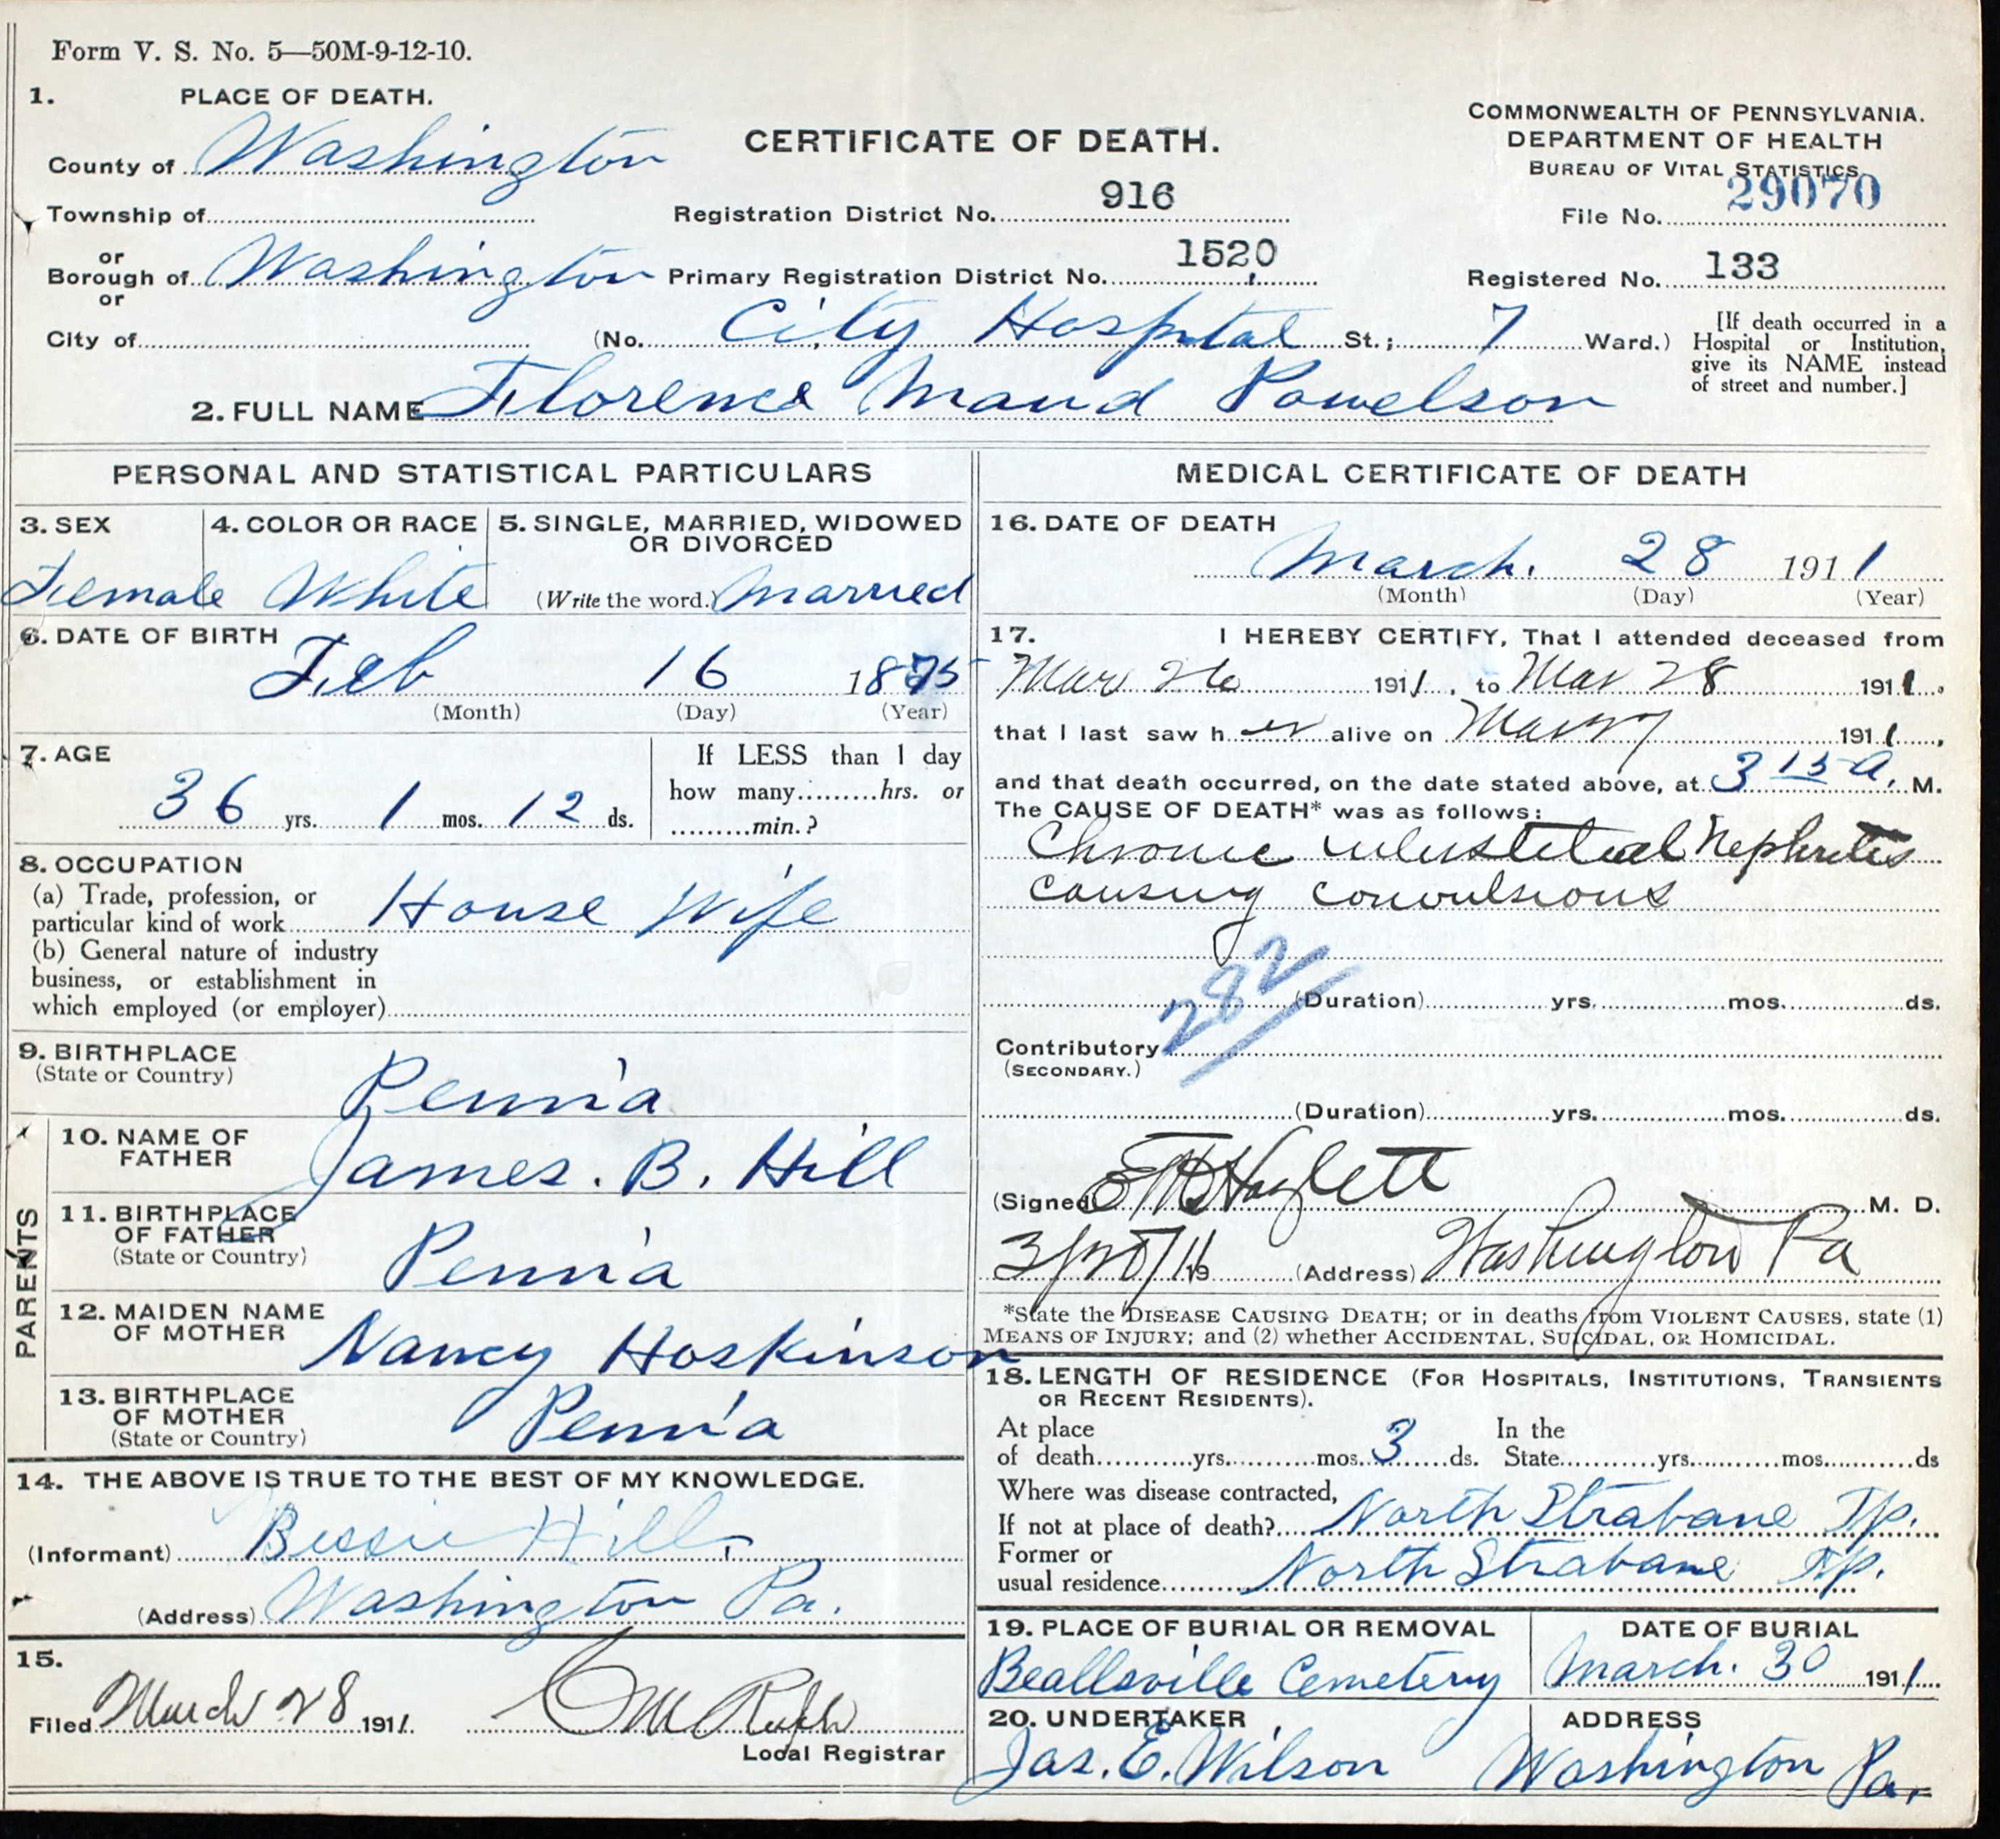 Form V. S. No. 5—50M-9-12-10.
1. PLACE OF DEATH.
County of Washington
Township of
or
Borough of Washington
or
City of
CERTIFICATE OF DEATH.
Registration District No. 916
Primary Registration District No. 1520
COMMONWEALTH OF PENNSYLVANIA.
DEPARTMENT OF HEALTH
BUREAU OF VITAL STATISTICS
File No. 29070
Registered No. 133
(No. City Hospital St.; 7 Ward.)
[If death occurred in a
Hospital or Institution,
give its NAME instead
of street and number.]
2. FULL NAME Florence Maud Powelson
PERSONAL AND STATISTICAL PARTICULARS
3. SEX
Female
4. COLOR OR RACE
White
5. SINGLE, MARRIED, WIDOWED
OR DIVORCED
(Write the word.) Married
6. DATE OF BIRTH
Feb 16 1875
(Month) (Day) (Year)
7. AGE
36 yrs. 1 mos. 12 ds.
If LESS than 1 day
how many hrs. or
min.?
8. OCCUPATION
(a) Trade, profession, or
particular kind of work House Wife
(b) General nature of industry
business, or establishment in
which employed (or employer)
9. BIRTHPLACE
(State or Country)
Penn'a
PARENTS
10. NAME OF
FATHER
James. B. Hill
11. BIRTHPLACE
OF FATHER
(State or Country)
Penn'a
12. MAIDEN NAME
OF MOTHER
Nancy Hoskinson
13. BIRTHPLACE
OF MOTHER
(State or Country)
Penn'a
14. THE ABOVE IS TRUE TO THE BEST OF MY KNOWLEDGE.
(Informant) Bessie Hill
(Address) Washington Pa.
15.
Filed March 28 1911.
Local Registrar
MEDICAL CERTIFICATE OF DEATH
16. DATE OF DEATH
March. 28 1911
(Month) (Day) (Year)
17. I HEREBY CERTIFY, That I attended deceased from
Mar 26 1911, to Mar 28 1911.
that I last saw her alive on 1911,
and that death occurred, on the date stated above, at 3 15 A. M.
The CAUSE OF DEATH* was as follows:
Chronic interstitial Nephritis
causing convulsions
282
(Duration) yrs. mos. ds.
Contributory
(SECONDARY.)
(Duration) yrs. mos. ds.
(Signed) Hazlett M. D.
19 (Address) Washington Pa
*State the DISEASE CAUSING DEATH; or in deaths from VIOLENT CAUSES, state (1)
MEANS OF INJURY; and (2) whether ACCIDENTAL, SUICIDAL, OR HOMICIDAL.
18. LENGTH OF RESIDENCE (FOR HOSPITALS, INSTITUTIONS, TRANSIENTS
OR RECENT RESIDENTS).
At place
of death yrs. mos. 3 ds.
In the
State yrs. mos. ds
Where was disease contracted,
If not at place of death? North Strabane Tp.
Former or
usual residence North Strabane Tp.
19. PLACE OF BURIAL OR REMOVAL
Beallsville Cemetery
DATE OF BURIAL
March. 30 1911
20. UNDERTAKER
Jas. E. Wilson
ADDRESS
Washington Pa.